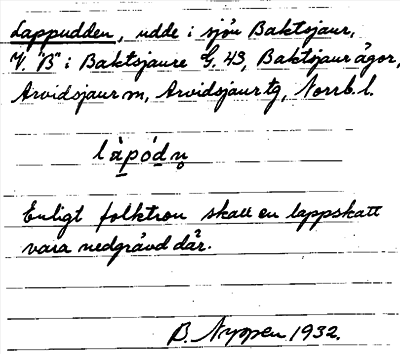 Lappudden, udde i sjön Baktsjaur,
V. "B" i Baktsjaure G. 43, Baktsjaur ägor,
Arvidsjaur sn, Arvidsjaur tg, Norrb. l.
làpód
Enligt folktron skall en lappskatt
vara nedgrävd där.
B. Nyppen 1932.